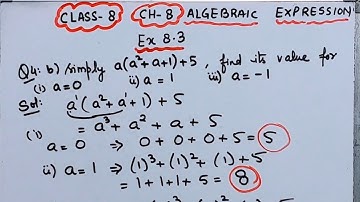 CLASS-8 CH-8 ALGEBRAIC EXPRESSION
Ex 8.3
Q4: b) simply a(a²+a+1)+5, find its value for
(i) a=0 ii) a = 1 iii) a=-1
Sol: a¹(a²+a¹+1) + 5
= a³ + a² + a + 5
(i) a=0 ⇒ 0 + 0 + 0 + 5 = 5
ii) a=1 ⇒ (1)³ + (1)² + (1) + 5
= 1 + 1 + 1 + 5 = 8